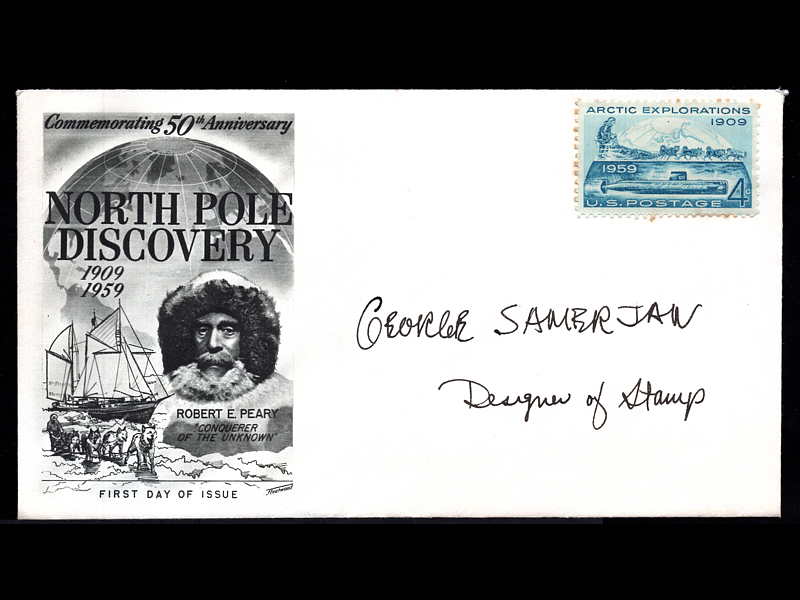 Commemorating 50th Anniversary
NORTH POLE
DISCOVERY
1909
1959
ROBERT E. PEARY
"CONQUERER
OF THE UNKNOWN"
FIRST DAY OF ISSUE
Fleetwood
ARCTIC EXPLORATIONS
1909
1959
4c
U.S. POSTAGE
GEORGE SAMERJAN
Designer of Stamp